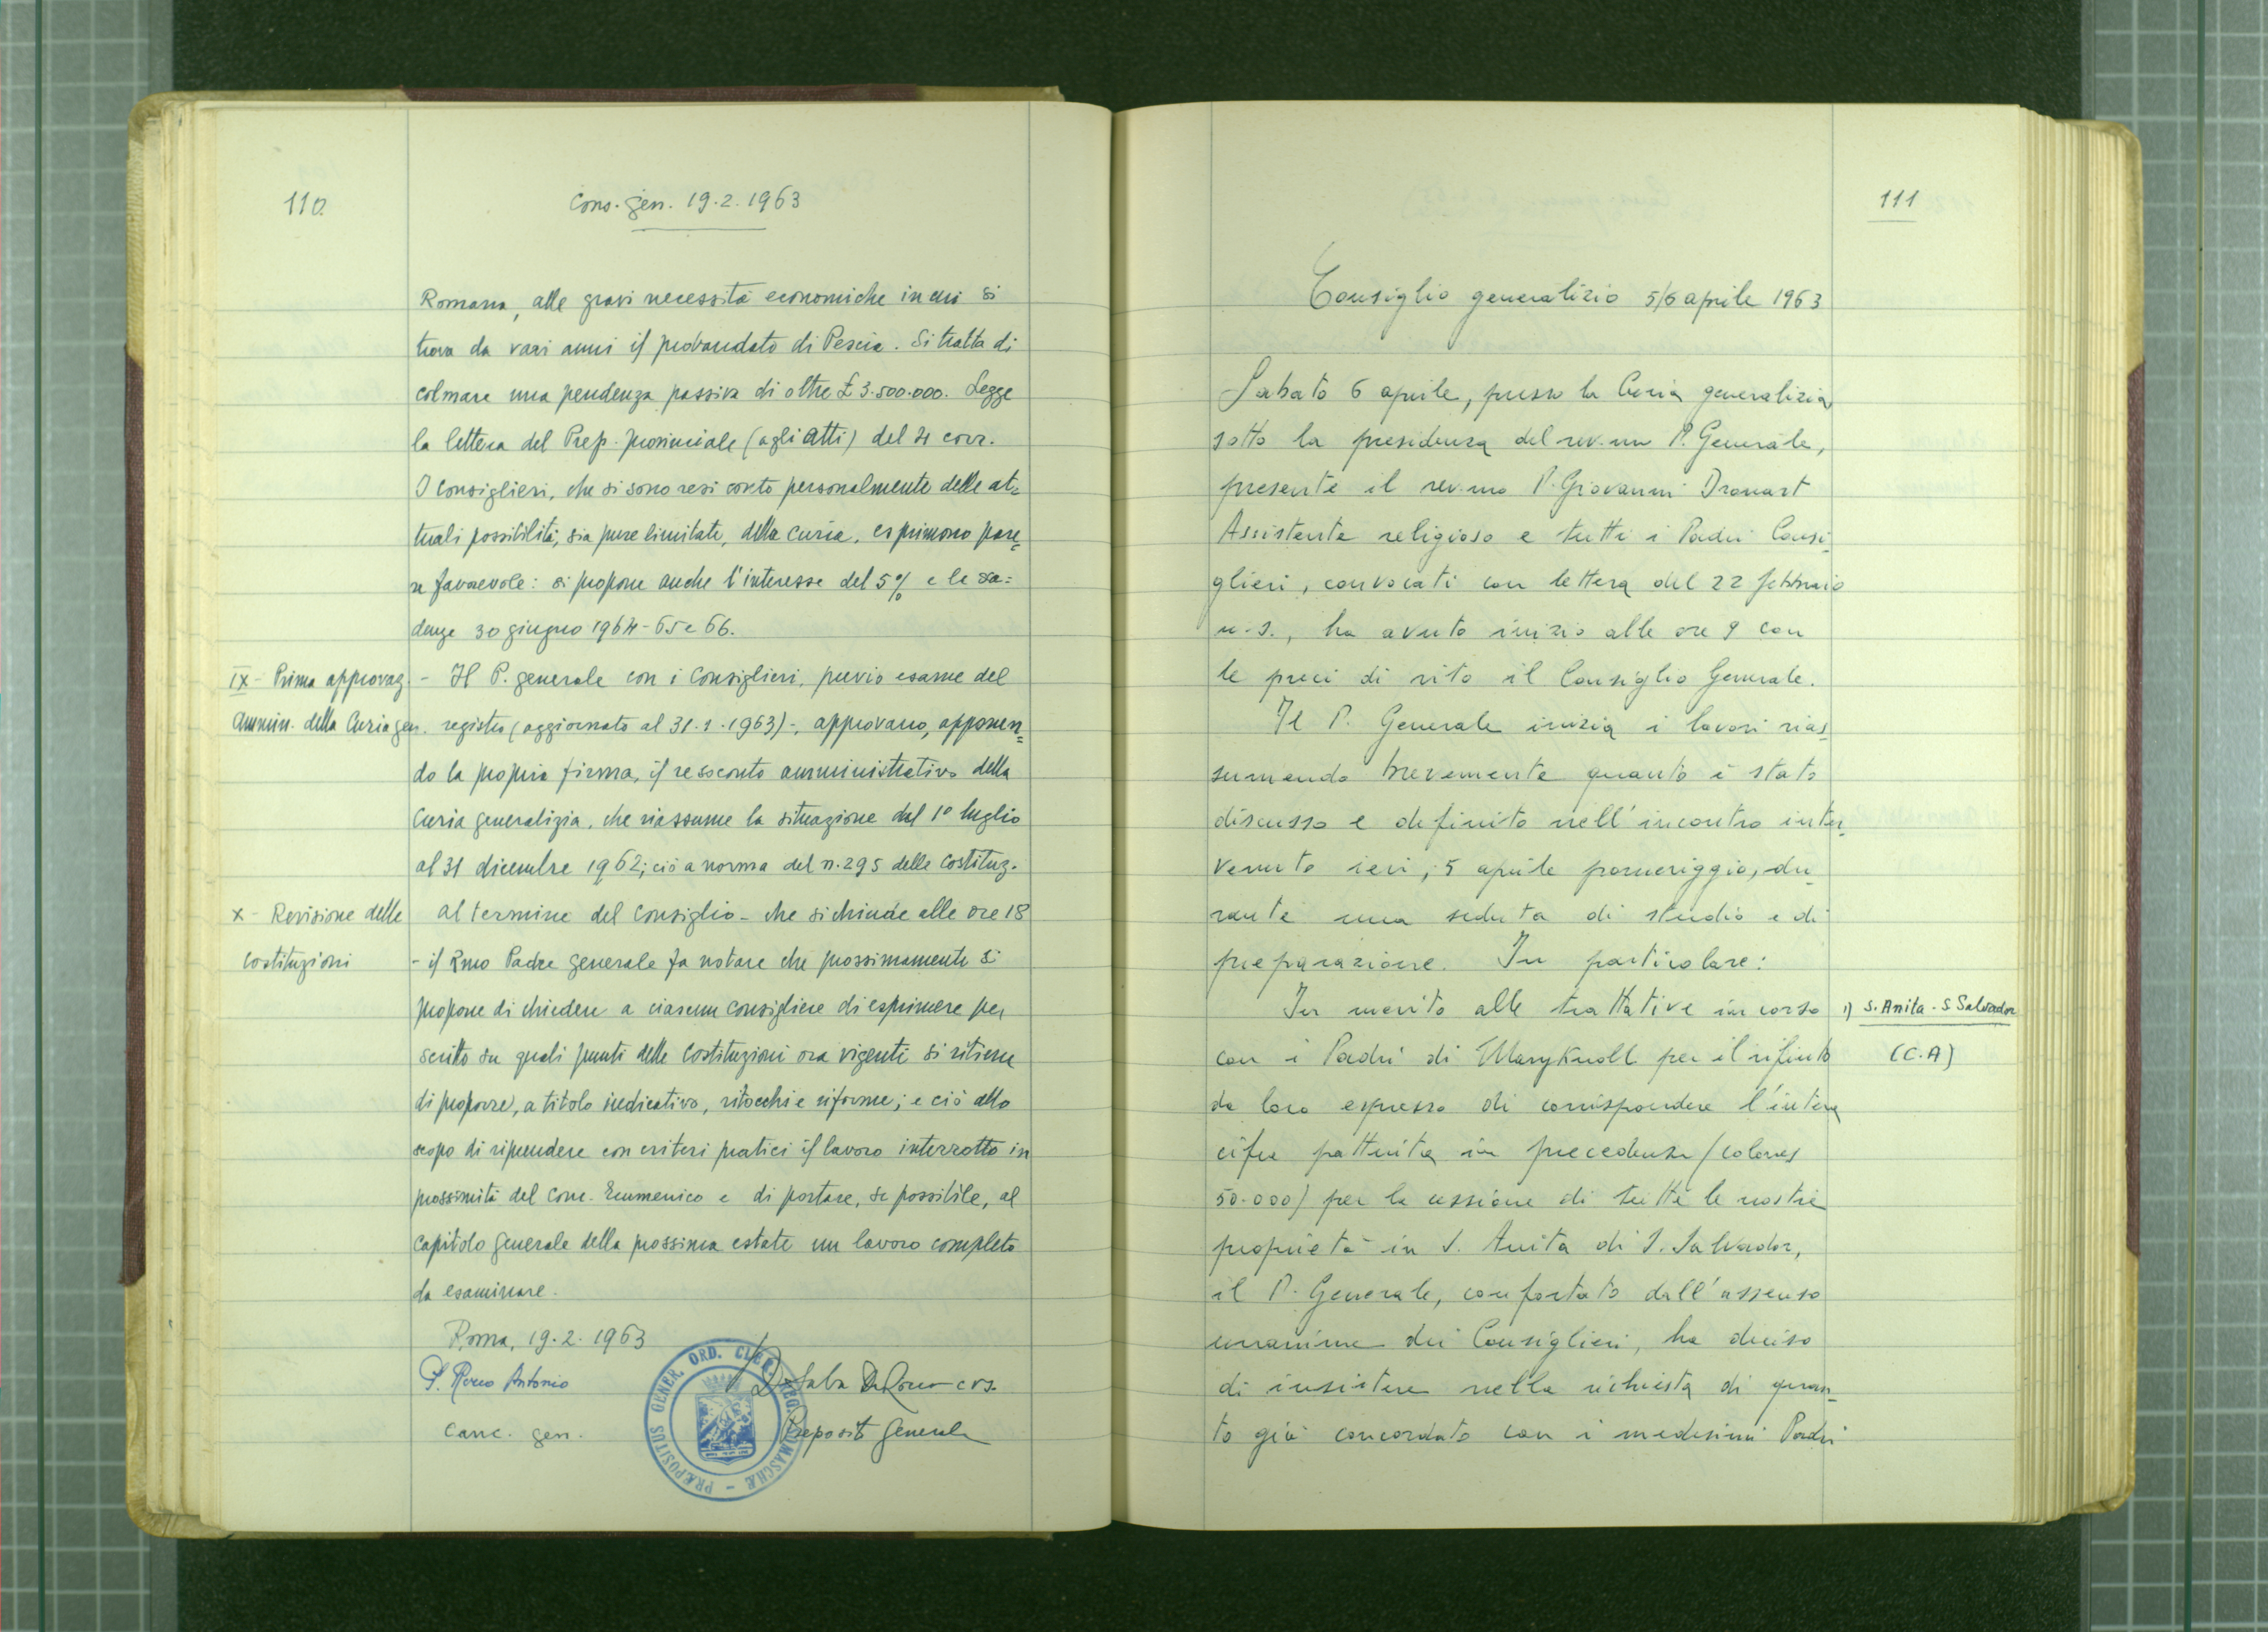 110
Cons. gen. 19.2.1963
Romana, alle gravi necessità economiche in cui si
trova da vari anni il probandato di Pescia. Si tratta di
colmare una pendenza passiva di oltre £ 3.500.000. Legge
la lettera del Prep. provinciale (agli atti) del 4 corr.
I consiglieri, che si sono resi conto personalmente delle at=
tuali possibilità, sia pure limitate, della Curia, esprimono pare=
re favorevole: si propone anche l'interesse del 5% e le sca=
denze 30 giugno 1964-65 e 66.
IX - Prima approvaz. - Il P. generale con i Consiglieri, previo esame del
Ammin. della Curia gen. registro (aggiornato al 31.1.1963) -, approvano, apponen=
do la propria firma, il resoconto amministrativo della
Curia generalizia, che riassume la situazione dal 1° luglio
al 31 dicembre 1962; ciò a norma del n. 295 delle Costituz.
X - Revisione delle al termine del Consiglio - che si chiude alle ore 18
Costituzioni - il Rmo Padre generale fa notare che prossimamente si
propone di chiedere a ciascun consigliere di esprimere per
scritto su quali punti delle Costituzioni ora vigenti si ritiene
di proporre, a titolo indicativo, ritocchi e riforme; e ciò allo
scopo di riprendere con criteri pratici il lavoro interrotto in
prossimità del Conc. Ecumenico e di portare, se possibile, al
capitolo generale della prossima estate un lavoro completo
da esaminare.
Roma, 19.2.1963
P. Rocco Antonio
Canc. gen.
D. Saba De Rocco crs.
Preposito Generale
PRÆPOSITUS GENER. ORD. CLER. REG. SOMASCHÆ
111
Consiglio generalizio 5/6 aprile 1963
Sabato 6 aprile, presso la Curia generalizia
sotto la presidenza del rev.mo P. Generale,
presente il rev.mo P. Giovanni Drouart
Assistente religioso e tutti i Padri Consi_
glieri, convocati con lettera del 22 febbraio
u.s., ha avuto inizio alle ore 9 con
le preci di rito il Consiglio Generale.
Il P. Generale inizia i lavori rias_
sumendo brevemente quanto è stato
discusso e definito nell'incontro inter_
venuto ieri, 5 aprile pomeriggio, du_
rante una seduta di studio e di
preparazione. In particolare:
In merito alle trattative in corso 1) S. Anita - S Salvador
con i Padri di Maryknoll per il rifiuto (C.A)
da loro espresso di corrispondere l'intera
cifra pattuita in precedenza (colones
50.000) per la cessione di tutte le nostre
proprietà in S. Anita di S. Salvador,
il P. Generale, confortato dall'assenso
unanime dei Consiglieri, ha deciso
di insistere nella richiesta di quan_
to già concordato con i medesimi Padri